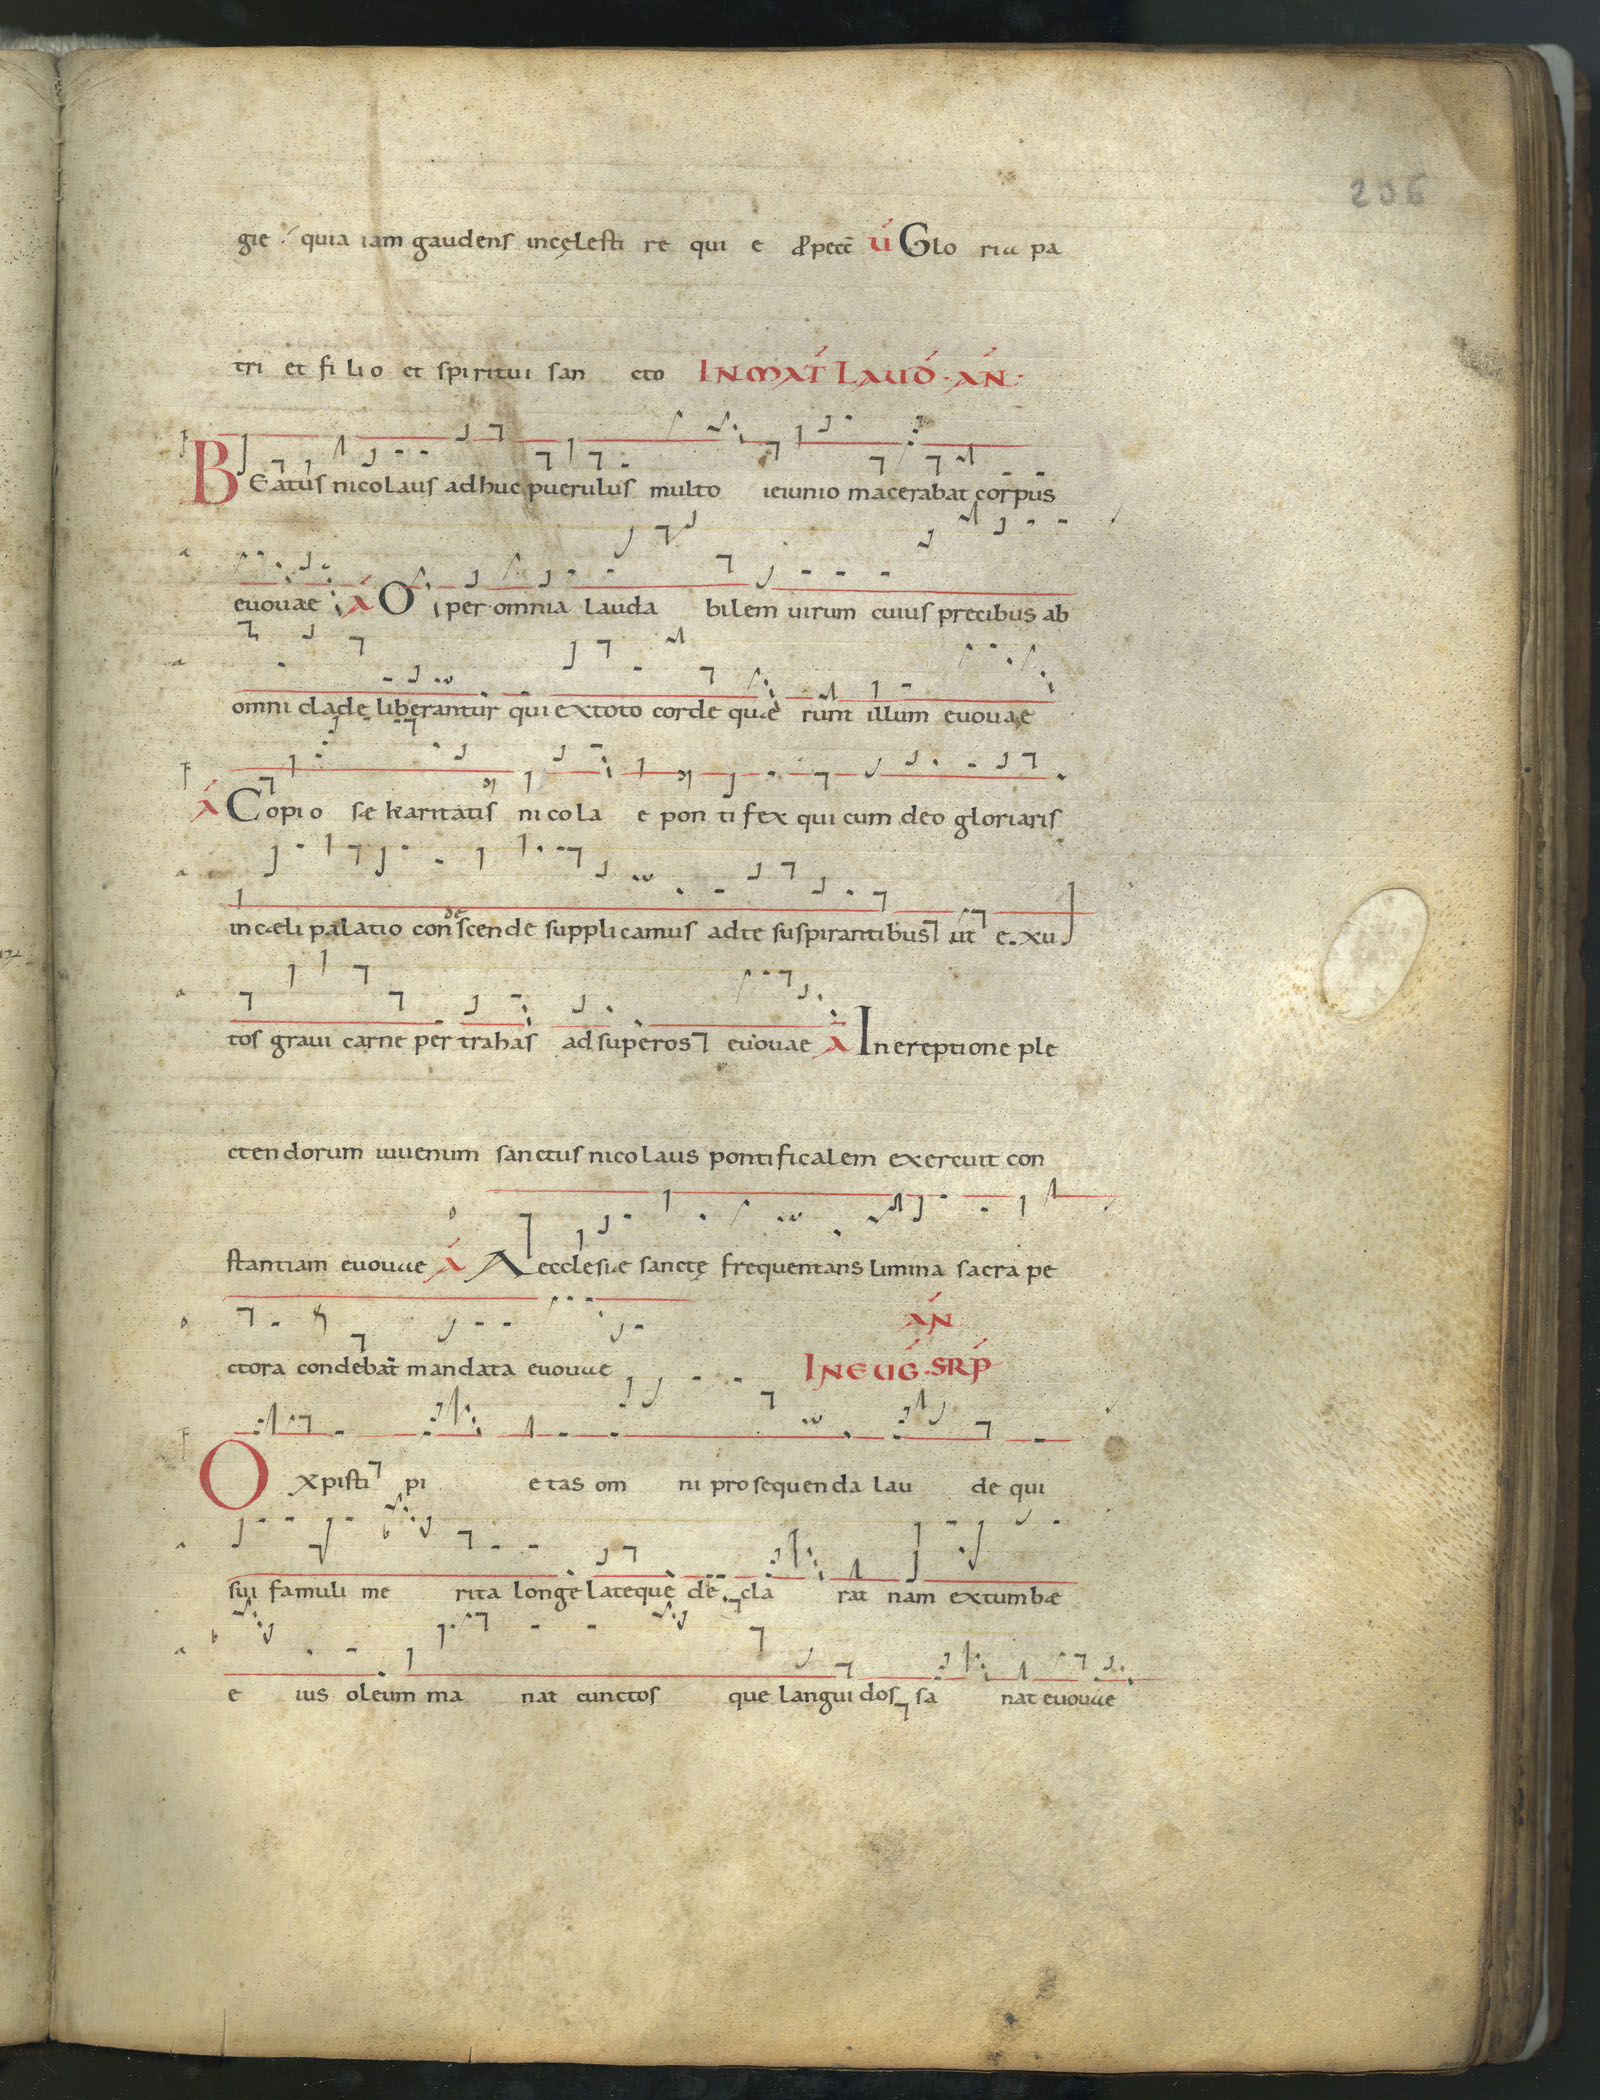 206
gie quia iam gaudens incęlesti re qui e Ppecc̄ V́ Glo ria pa
tri et fi lio et spiritui san cto INMAT́ LAUD́. AŃ.
BEatus nicolaus adhuc puerulus multo ieiunio macerabat corpus
euouae Á O per omnia lauda bilem uirum cuius precibus ab
omni clade liberantur qui extoto corde quæ runt illum euouae
Á Copio sæ karitatis nicola e pon ti fex qui cum deo gloriaris
incæli palatio condescende supplicamus adte suspirantibus ut e xu
tos graui carne per trahas ad superos euouae Á Inereptione ple
ctendorum iuuenum sanctus nicolaus pontificalem exercuit con
stantiam euouae Á Aecclesiæ sanctę frequentans limina sacra pe
ctora condebat mandata euouae AŃ
INEUǴ. SRṔ
O xpisti pi e tas om ni prosequenda lau de qui
sui famuli me rita longe lateque de cla rat nam extumbæ
e ius oleum ma nat cunctos que langui dos sa nat euouae